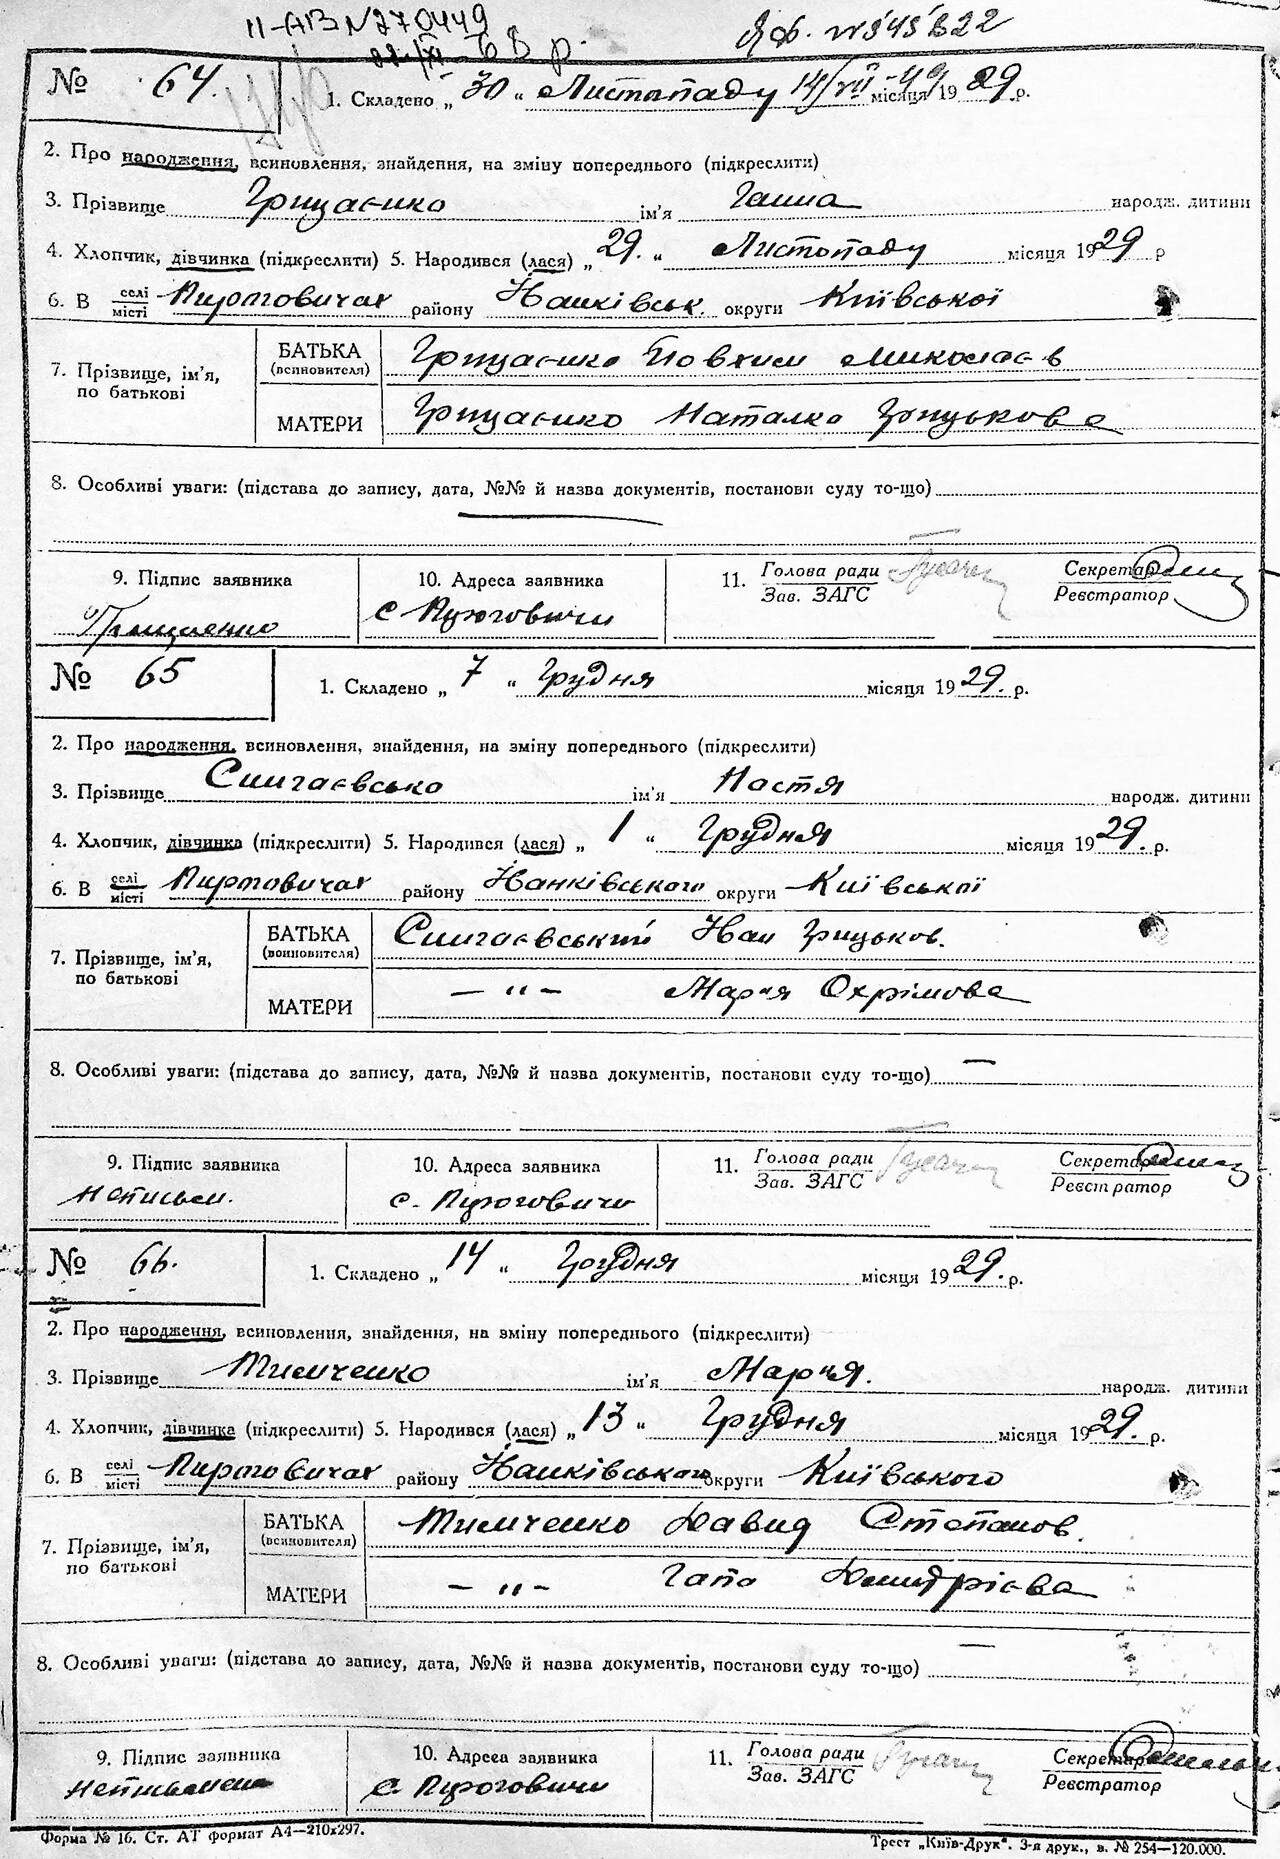 II-АВ № 270449
22/XI-63 р.
№ 64. 1. Складено „ 30 “ Листопаду 14/VII-49 місяця 1929 р.
2. Про народження, всиновлення, знайдення, на зміну попереднього (підкреслити)
3. Прізвище Грищенко ім'я Ганна народж. дитини
4. Хлопчик, дівчинка (підкреслити) 5. Народився (лася) „ 29. “ Листопаду місяця 1929 р
6. В селі/місті Пироговичах району Іванківськ. округи Київської
7. Прізвище, ім'я, по батькові
БАТЬКА (всиновителя) Грищенко Йовхим Миколаєв
МАТЕРИ Грищенко Наталка Грицькова
8. Особливі уваги: (підстава до запису, дата, №№ й назва документів, постанови суду то-що)
9. Підпис заявника 10. Адреса заявника 11. Голова ради Секретар
Зав. ЗАГС Реєстратор
Грищенко с Пироговичи
№ 65 1. Складено „ 7 “ Грудня місяця 1929. р.
2. Про народження, всиновлення, знайдення, на зміну попереднього (підкреслити)
3. Прізвище ім'я Настя народж. дитини
4. Хлопчик, дівчинка (підкреслити) 5. Народився (лася) „ 1 “ Грудня місяця 1929. р.
6. В селі/місті Пироговичах району Іванківського округи Київської
7. Прізвище, ім'я, по батькові
БАТЬКА (воиновителя) Іван Грицьков.
МАТЕРИ — " — Мария Охрімова
8. Особливі уваги: (підстава до запису, дата, №№ й назва документів, постанови суду то-що) —
9. Підпис заявника 10. Адреса заявника 11. Голова ради Секретар
Зав. ЗАГС Реєстратор
Неписьм. с. Пироговичи
№ 66. 1. Складено „ 14 “ Грудня місяця 1929. р.
2. Про народження, всиновлення, знайдення, на зміну попереднього (підкреслити)
3. Прізвище Тимченко ім'я Мария. народж. дитини
4. Хлопчик, дівчинка (підкреслити) 5. Народився (лася) „ 13 “ Грудня місяця 1929. р.
6. В селі/місті Пироговичах району Іванківського округи Київського
7. Прізвище, ім'я, по батькові
БАТЬКА (всиновителя) Тимченко Давид Степанов.
МАТЕРИ — " — Гапа Дмитрієва
8. Особливі уваги: (підстава до запису, дата, №№ й назва документів, постанови суду то-що) —
9. Підпис заявника 10. Адреса заявника 11. Голова ради Секретар
Зав. ЗАГС Реєстратор
Неписьмена с. Пироговичи
Форма № 16. Ст. АТ формат А4—210х297. Трест „Київ-Друк“. 3-я друк., в. № 254—120.000.